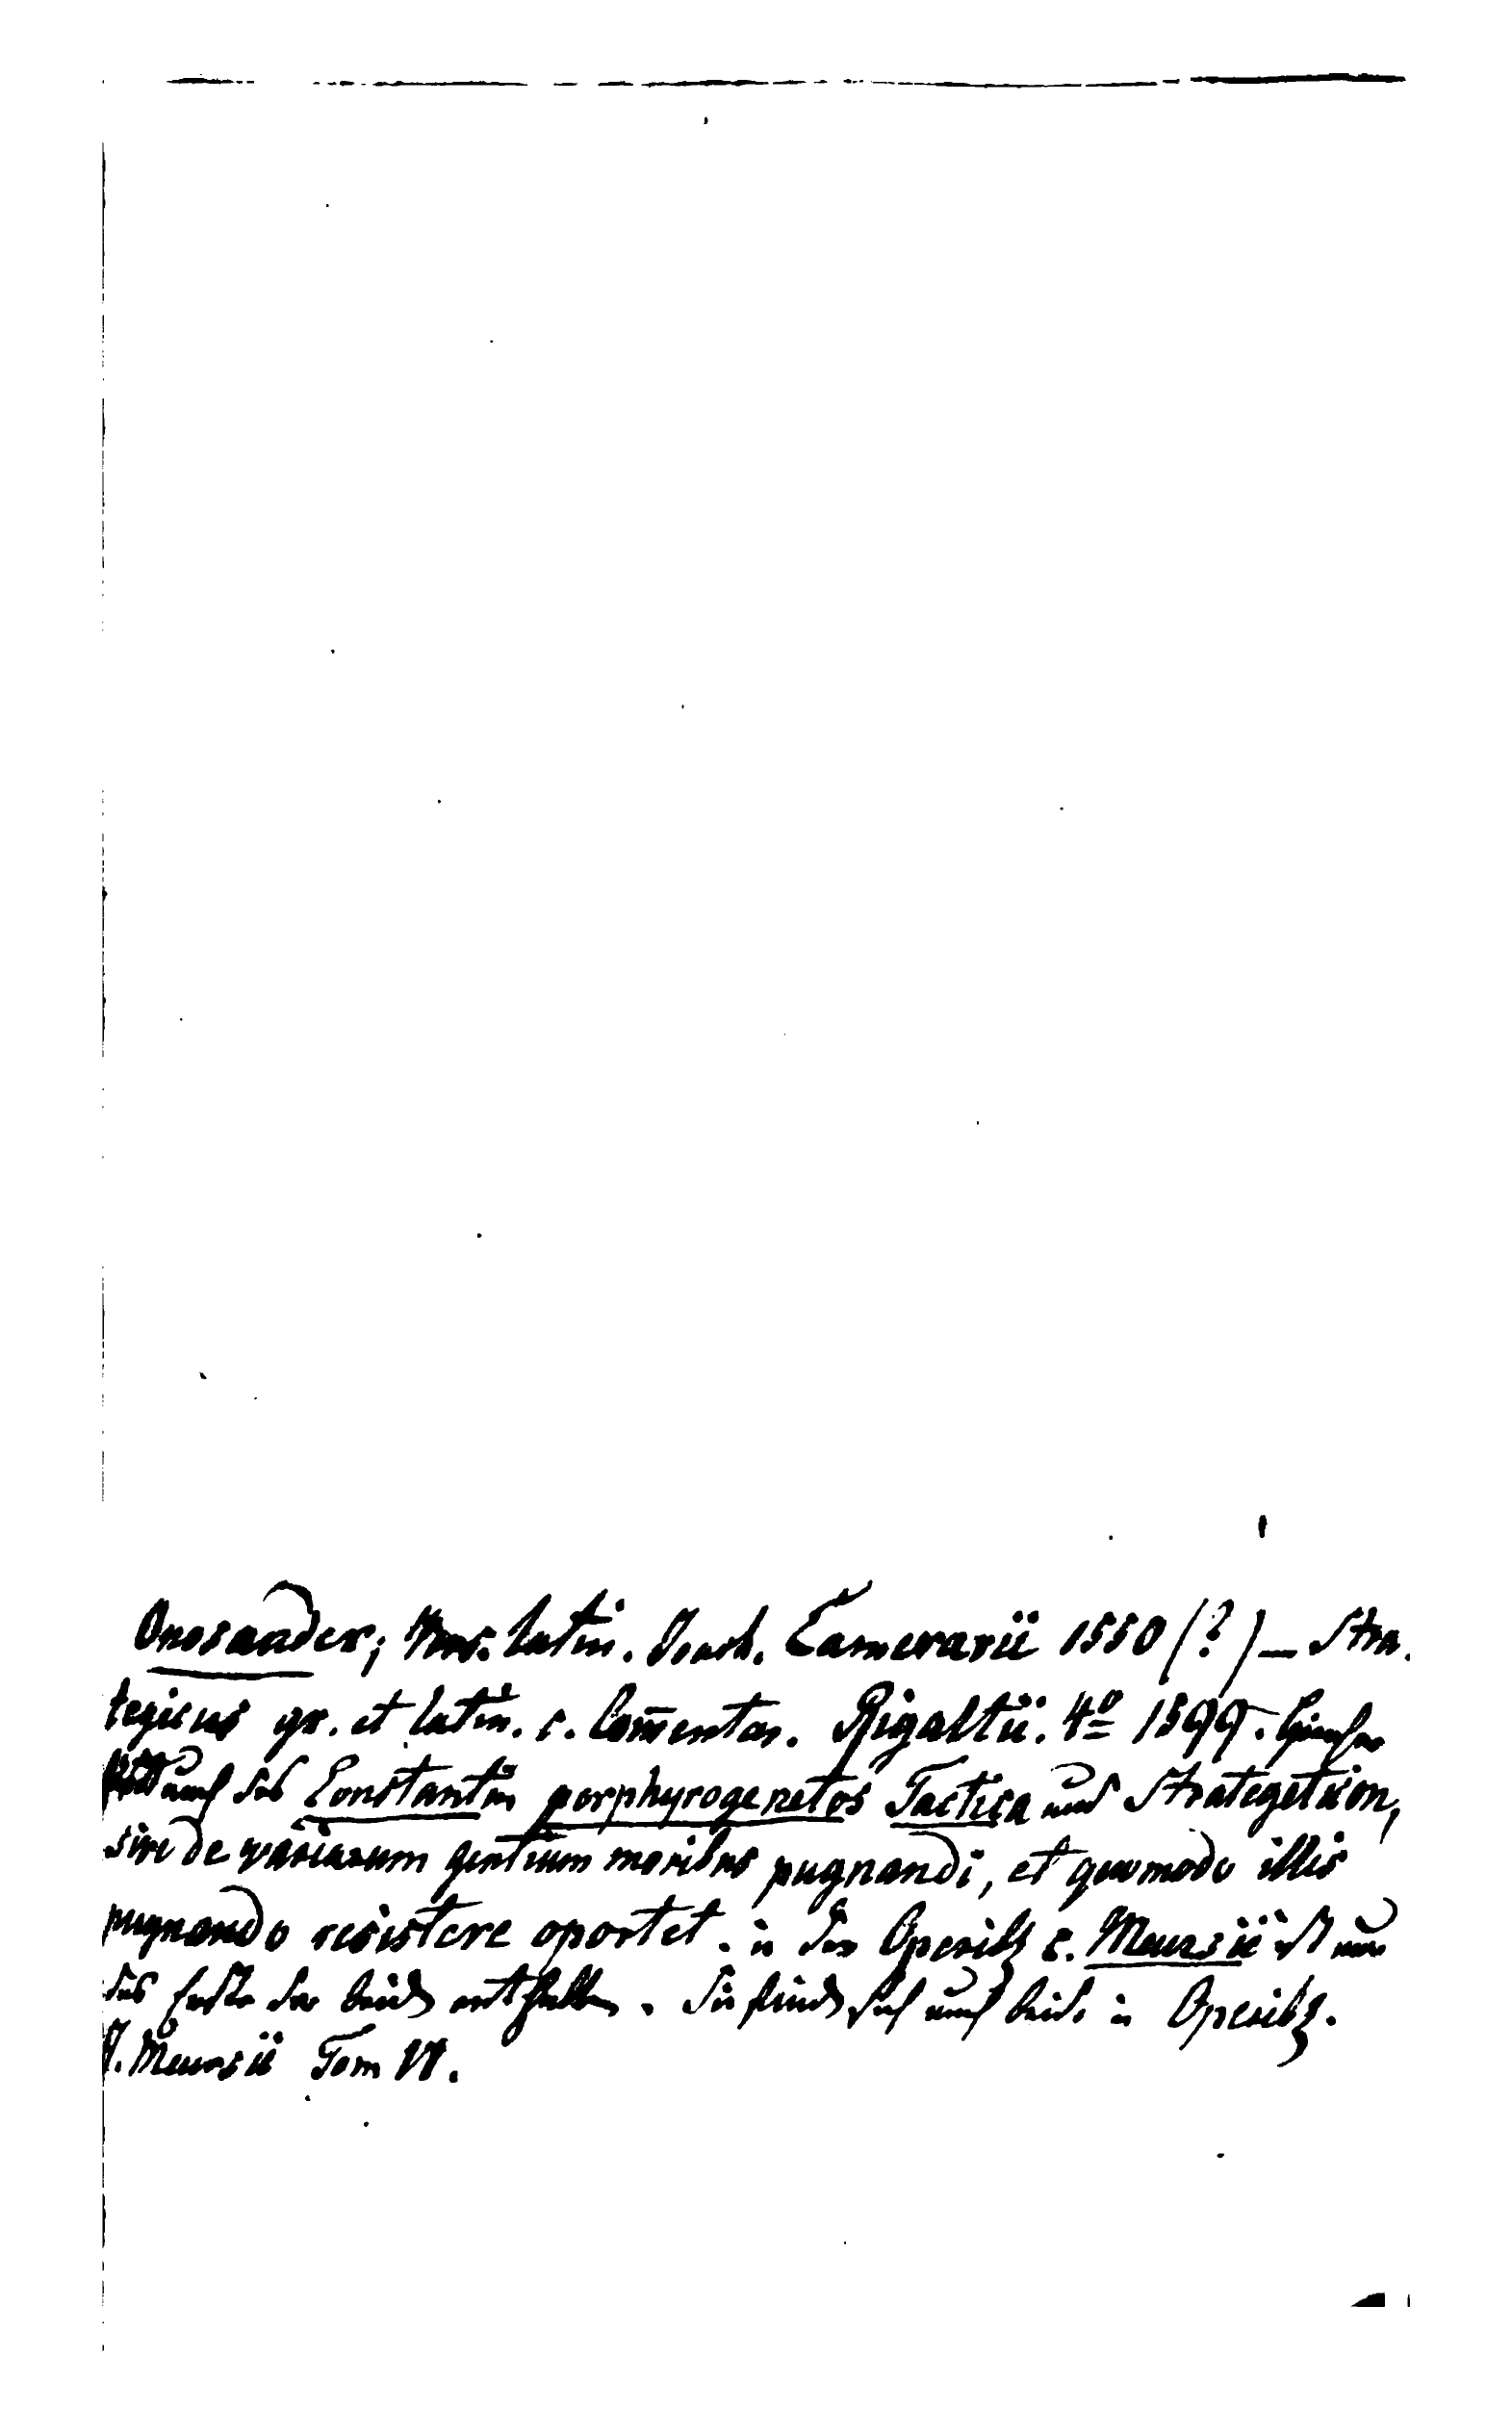 Onosander; Vers. latin. Joach. Camerarii 1550 (?) — Stra-
tegicus gr. et latin. c. Com̅entar. Rigaltii. 4º 1599. Hieher
auch des Constantin porphyrogenetos Tactica und Strategeticon,
sive de variarum gentium moribus pugnandi, et quomodo illis
pugnando resistere oportet. in den Operib c. Meursii ist nur
das Erste der beiden enthalten. Sie finden sich auch beide in Operib.
J. Meursii Tom VI.